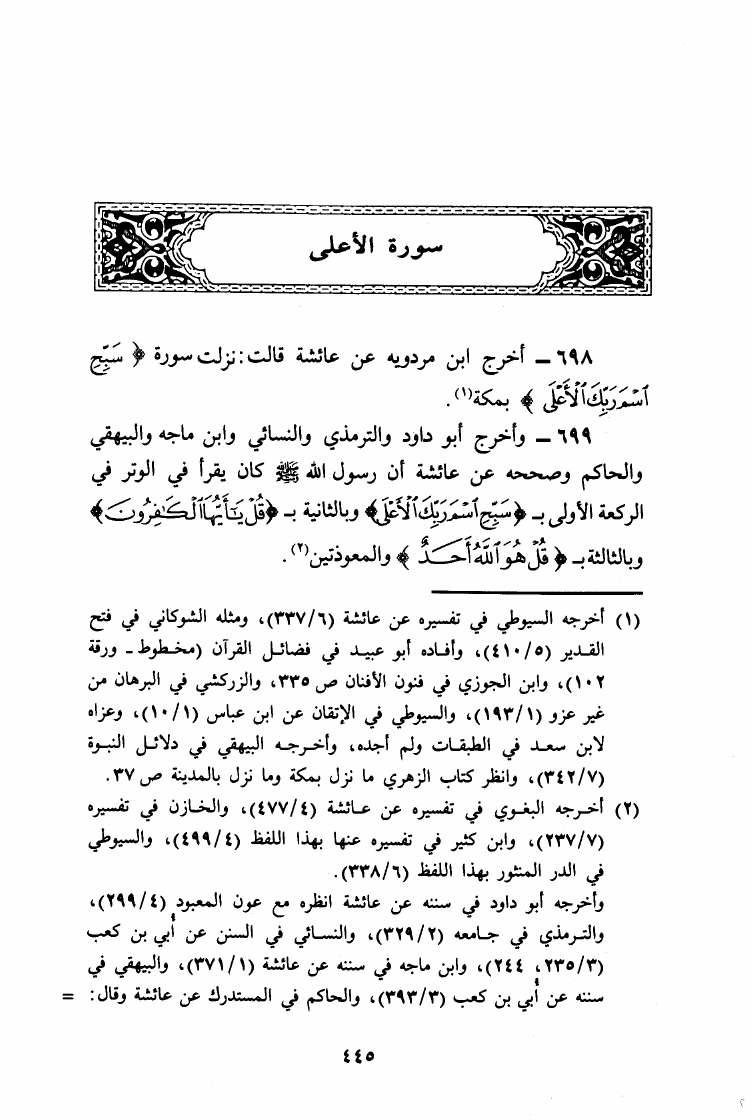 سورة الأعلى
٦٩٨ ـ أخرج ابن مردويه عن عائشة قالت: نزلت سورة ﴿ سَبِّحِ
ٱسْمَ رَبِّكَ ٱلْأَعْلَى ﴾ بمكة(١).
٦٩٩ ـ وأخرج أبو داود والترمذي والنسائي وابن ماجه والبيهقي
والحاكم وصححه عن عائشة أن رسول الله ﷺ كان يقرأ في الوتر في
الركعة الأولى بـ ﴿سَبِّحِ ٱسْمَ رَبِّكَ ٱلْأَعْلَى﴾ وبالثانية بـ ﴿قُلْ يَٰٓأَيُّهَا ٱلْكَٰفِرُونَ﴾
وبالثالثة بـ ﴿ قُلْ هُوَ ٱللَّهُ أَحَدٌ ﴾ والمعوذتين(٢).
(١) أخرجه السيوطي في تفسيره عن عائشة (٣٣٧/٦)، ومثله الشوكاني في فتح
القدير (٤١٠/٥)، وأفاده أبو عبيد في فضائل القرآن (مخطوط ـ ورقة
١٠٢)، وابن الجوزي في فنون الأفنان ص ٣٣٥، والزركشي في البرهان من
غير عزو (١٩٣/١)، والسيوطي في الإتقان عن ابن عباس (١٠/١)، وعزاه
لابن سعد في الطبقات ولم أجده، وأخرجه البيهقي في دلائل النبوة
(٣٤٢/٧)، وانظر كتاب الزهري ما نزل بمكة وما نزل بالمدينة ص ٣٧.
(٢) أخرجه البغوي في تفسيره عن عائشة (٤٧٧/٤)، والخازن في تفسيره
(٢٣٧/٧)، وابن كثير في تفسيره عنها بهذا اللفظ (٤٩٩/٤)، والسيوطي
في الدر المنثور بهذا اللفظ (٣٣٨/٦).
وأخرجه أبو داود في سننه عن عائشة انظره مع عون المعبود (٢٩٩/٤)،
والترمذي في جامعه (٣٢٩/٢)، والنسائي في السنن عن أبي بن كعب
(٢٣٥/٣، ٢٤٤)، وابن ماجه في سننه عن عائشة (٣٧١/١)، والبيهقي في
سننه عن أبي بن كعب (٣٩٣/٣)، والحاكم في المستدرك عن عائشة وقال: =
٤٤٥